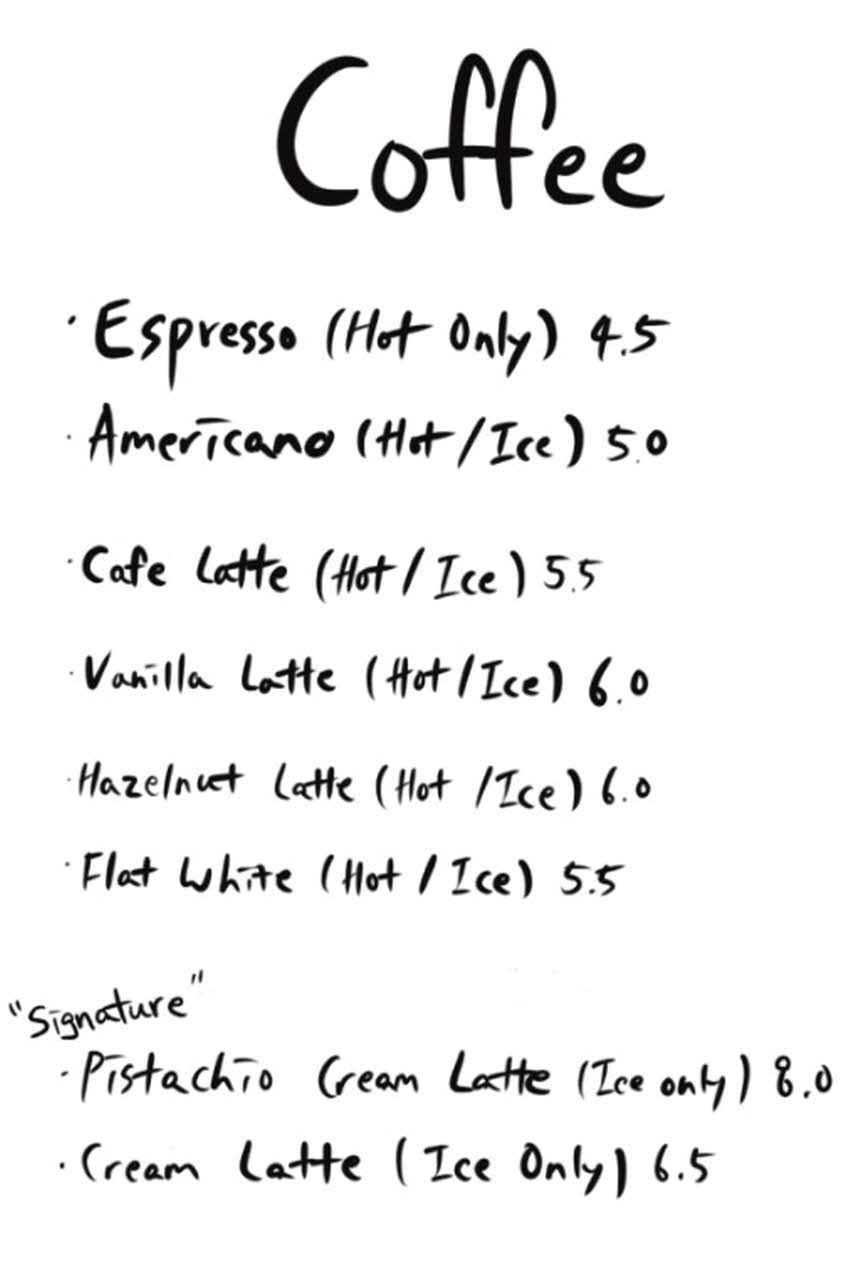 Coffee
· Espresso (Hot Only) 4.5
· Americano (Hot/Ice) 5.0
· Cafe Latte (Hot/Ice) 5.5
· Vanilla Latte (Hot/Ice) 6.0
· Hazelnut Latte (Hot/Ice) 6.0
· Flat White (Hot/Ice) 5.5
"Signature"
· Pistachio Cream Latte (Ice only) 8.0
· Cream Latte (Ice Only) 6.5